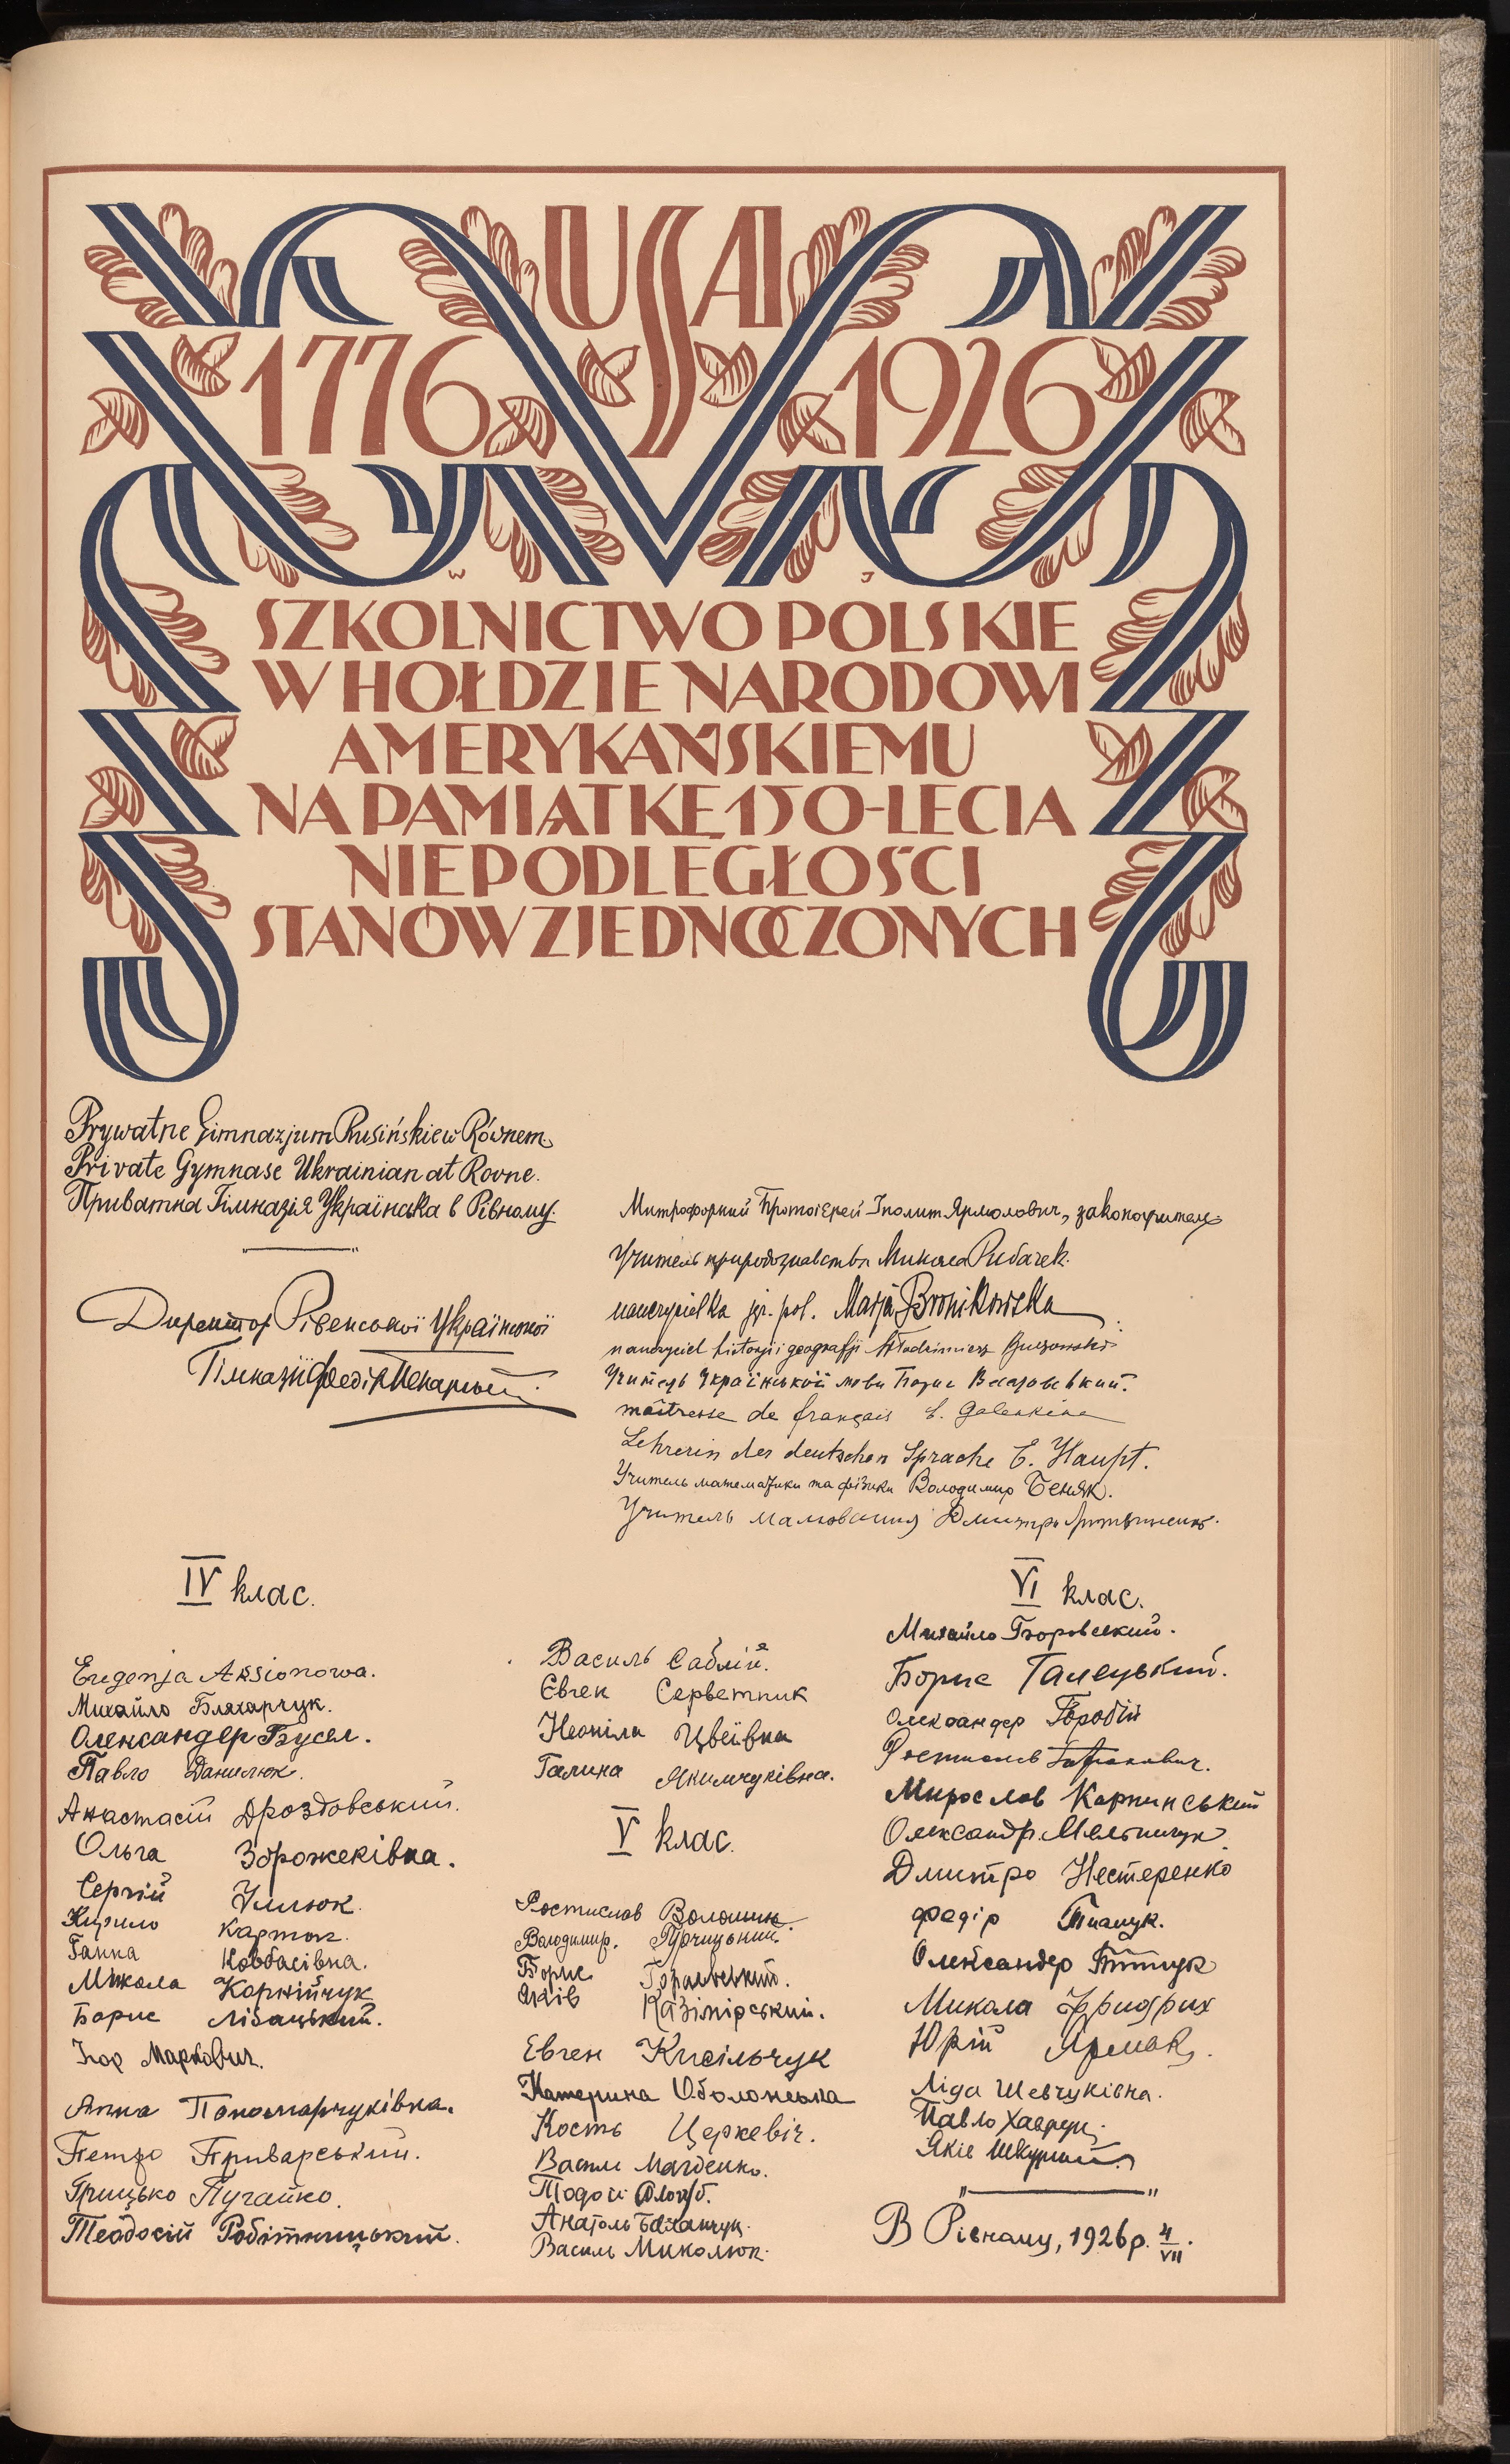 USA
1776 1926
W J
SZKOLNICTWO POLSKIE
W HOŁDZIE NARODOWI
AMERYKAŃSKIEMU
NA PAMIĄTKĘ 150-LECIA
NIEPODLEGŁOŚCI
STANÓW ZJEDNOCZONYCH
Prywatne Gimnazjum Rusińskie w Równem.
Private Gymnase Ukrainian at Rovne.
Приватна Гімназія Українска в Рівному.
Директор Рівенської Української
Гімназії Федір Пекарський
Митрофорний Протоієрей Іполит Ярмолович, законоучитель
Учитель природознавства Микола Рибачек.
nauczycielka jęz. pol. Marja Bronikowska
nauczyciel historji i geografji Włodzimierz
Учитель Української мови Борис
maîtresse de français E. Galenkine
Lehrerin der deutschen Sprache E. Haupt.
Учитель математики та фізики Володимир Беняк.
Учитель малювання Дмитро
IV клас.
Eugenja Aksionowa.
Михайло Бляхарчук.
Олександер Бусел.
Павло Данилюк.
Анастасій Дроздовський.
Ольга Зорожеківна.
Сергій Улюк.
Кирило Картон.
Ганна Ковбасівна.
Микола Корнійчук
Борис Лібацький.
Ігор Маркович.
Анна Пономарчуківна.
Петро Приварський.
Грицько Пугайко.
Теодосій Робітницький.
Василь Саблій.
Євген Серветник
Неоніла Цвеївна
Галина Якимчуківна.
V клас.
Ростислав Волошин.
Володимир.
Борис
Яків Казімірський.
Евген Кисільчук
Катерина Оболонська
Кость Церкевіч.
Василь Магденко.
Тодой
Анатоль Баханчук.
Василь Миколюк.
VI клас.
Михайло
Борис Галецький.
Олександер
Ростислав
Мирослав Карпинський
Олександр Мельничук
Дмитро Нестеренко
Федір Ткачук.
Олександер
Микола Фридрих
Юрій Ярмак.
Ліда Шевчуківна.
Павло
Яків
В Рівному, 1926 р. 4/VII.